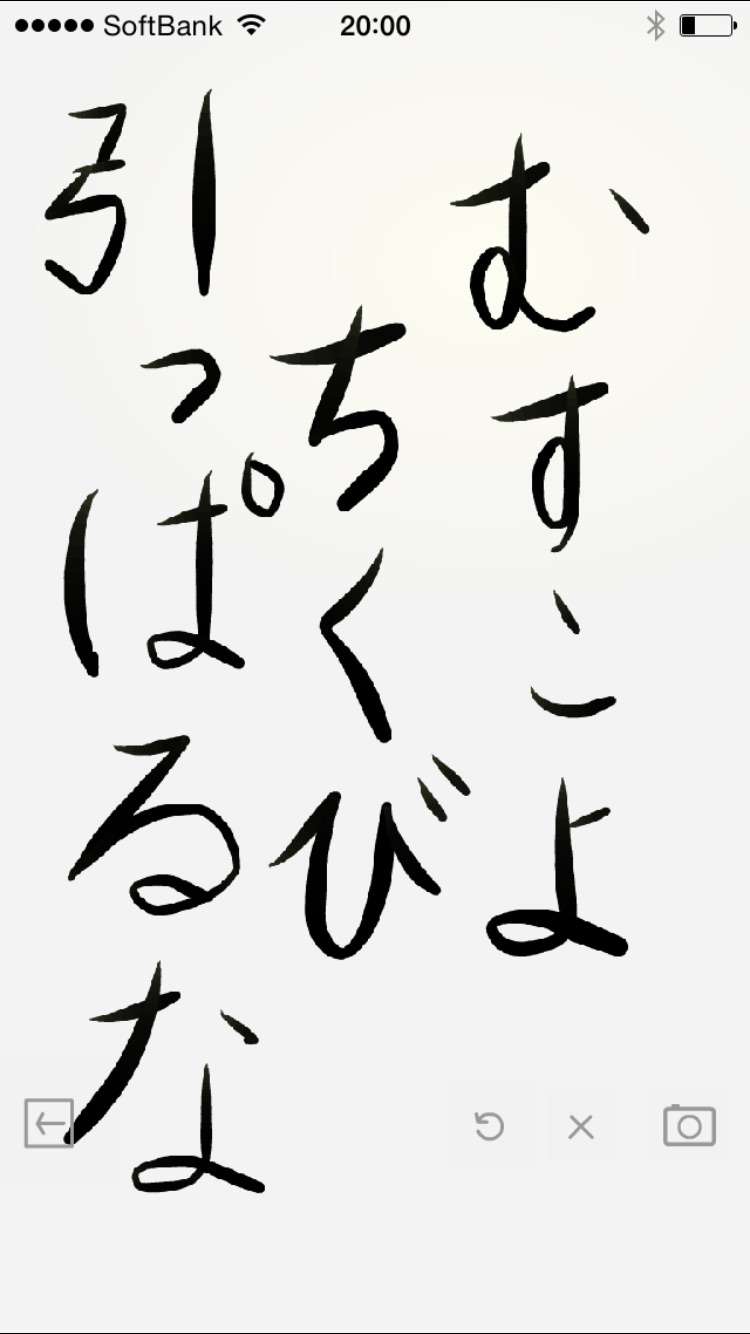 SoftBank 20:00
むすこよ
ちくび
引っぱるな